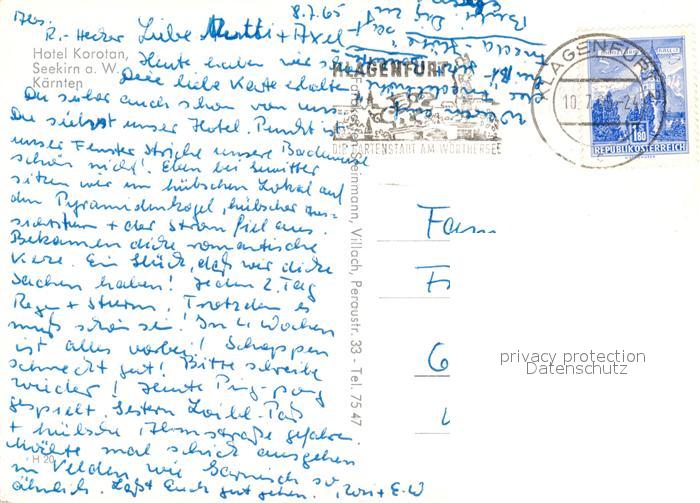 Abs.
8.7.65
R.-Hecker Liebe Mutti + Axel
Hotel Korotan,
Seekirn a. W.
Kärnten
Heute haben wir
Deine liebe Karte erhalten
Du sicher auch schon von uns.
Du siehst unser Hotel. Punkt ist
unser Fenster Striche unsere Badewiese
schön nicht! Eben bei Gewitter
sitzen wir im hübschen Lokal auf
dem Pyramidenkogel, hübscher Aus-
sichtsturm + der Strom fiel aus.
Bekamen dicke romantische
Kerze. Ein Glück, daß wir dicke
Sachen haben! Jeden 2. Tag
Regen + Sturm. Trotzdem es
muß schön sein! In 4 Wochen
ist alles vorbei! Schoppen
schmeckt gut! Bitte schreibe
wieder! Heute Ping-pong
gespielt. Gestern Loibl-Paß
+ hübsche gefahren.
Möchte mal schick ausgehen
in Velden wie Garmisch so
ähnlich. Laßt Euch gut gehen. + E.W
H 20
Steinmann, Villach, Peraustr. 33 - Tel. 75 47
KLAGENFURT
DIE GARTENSTADT AM WÖRTHERSEE
KLAGENFURT
10.7.
1.80
REPUBLIK ÖSTERREICH
Fam
privacy protection
Datenschutz